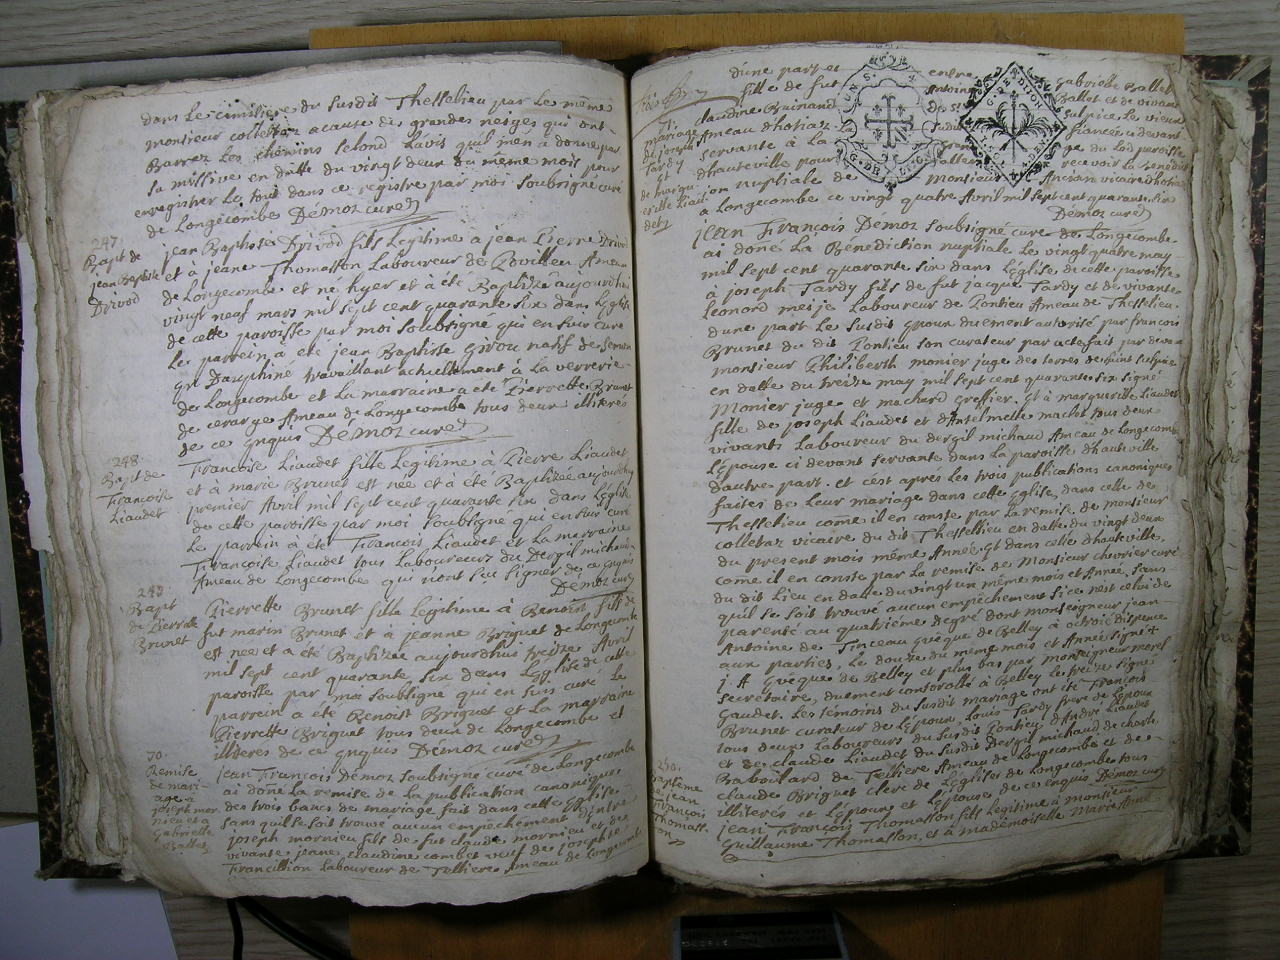 dans le cimitiere du susdit Thessellieu par le même
monsieur colletaz a cause des grandes neiges qui ont
Barrez les chemins selond l'avis quil m'en à donné par
sa missive en datte du vingt deux du même mois pour
enregistrer le tout dans ce registre par moi soubsigne curé
de Longecombe Démoz curé
247
Bapt de
jean Baptiste
Drivod
jean Baptiste Drivod fils legitime à jean Pierre Drivod
et à jeane Thomasson Laboureur de Ameau
de Longecombe est né hyer et à été Baptizé aujourdhui
vingt neuf mars mil sept cent quarante six dans l'Eglise
de cette paroisse par moi soubsigné qui en suis curé
le parrein à été jean Baptiste Girou natif de
en Dauphine travaillant actuellement à la verrerie
de Longecombe et la marraine a été Pierrette Brunet
de cerarge Ameau de Longecombe tous deux illiterés
de ce enquis Démoz curé
248
Bapt de
francoise
Liaudet
francoise Liaudet fille legitime à Pierre Liaudet
et à marie Brunet est née et a été Baptizée aujourdhuy
premier Avril mil sept cent quarante six dans l'Eglise
de cette paroisse par moi soubsigné qui en suis curé
le parrein à été francois Liaudet et la marraine
francoise Liaudet tous Laboureurs du dergil michaud
Ameau de Longecombe qui n'ont seu signer de ce enquis
Démoz curé
249
Bapt
de Pierrette
Brunet
Pierrette Brunet fille legitime à Benoist fils de
fut marin Brunet et à jeanne Briguet de Longecombe
est née et a été Baptizée aujourdhui treize Avril
mil sept cent quarante six dans l'Eglise de cette
paroisse par moi soubsigné qui en suis curé le
parrein a été Benoist Briguet et la marraine
Pierrette Briguet tous deux de Longecombe et
illiteres de ce enquis Démoz curé
70.
Remise
de mari-
age à
joseph mor
nieu et à
Gabrielle
Ballet
jean francois Démoz soubsigné curé de Longecombe
ai doné la remise de la publication canonique
des trois bancs de mariage fait dans cette Eglise
sans quil se soit trouvé aucun empechement d'entre
joseph mornieu fils de fut claude mornieu et de
vivante jeane claudine combet veuf de josephte
francillion laboureur de Tellieres Ameau de Longecombe
d'une part et entre Gabrielle Ballet
fille de fut Antoine Ballet et de vivante
claudine Buinand de St sulpice le vieux
Ameau d'hotiaz fiancée ci devant
servante à la ge du Lod paroisse
dhauteville pour recevoir la benedict
ion nuptiale de Monsieur Ancian vicaire dhotiaz
a Longecombe ce vingt quatre Avril mil sept cent quarante six
Démoz curé
71.
mariage
de joseph
Tardy
et
de margu-
eritte Liau
det
jean francois Démoz soubsigné curé de Longecombe
ai doné la Benediction nuptiale le vingt quatre may
mil sept cent quarante six dans l'Eglise de cette paroisse
à joseph Tardy fils de fut jacque Tardy et de vivante
Leonard meije Laboureur de Pontieu Ameau de Thessellieu
d'une part Le susdit epoux duement autorisé par francois
Brunet du dit Pontieu son curateur par acte fait par devant
monsieur Philiberth monier juge des terres de saint sulpice
en datte du treize may mil sept cent quarante six signé
Monier juge et machard greffier. Et à margueritte Liaudet
fille de joseph Liaudet et d'Antselmette machet tous deux
vivants Laboureur du dergil michaud Ameau de Longecombe
l'Epouse ci devant servante dans la paroisse dhauteville
dautre part. et c'est après les trois publications canoniques
faites de leur mariage dans cette Eglise, dans celle de
Thessellieu come il en conste par la remise de monsieur
colletaz vicaire du dit Thessellieu en datte du vingt deux
du present mois même Année. Et dans celle dhauteville
come il en conste par la remise de Monsieur chevrier curé
du dit Lieu en datte du vingt un même mois et Année. Sans
quil se soit trouvé aucun empêchement si ce n'est celui de
parenté au quatriéme degré dont monseigneur jean
Antoine de Tinceau Evêque de Belley à octroié dispence
aux parties. Le douze du même mois et Année signé +
j. A Evêque de Belley et plus bas par monseigneur morel
secretaire, duement controllé à Belley le treize signé
Gaudet. Les témoins du susdit mariage ont été francois
Brunet curateur de l'Epoux, Louis Tardy frere de l'Epoux
tous deux Laboureurs du susdit Pontieu, d'André Liaudet
et de claude Liaudet du susdit Dergil michaud, de charle
Baboillard de Tellieres Ameau de Longecombe et de
claude Briguet clerc de l'Eglise de Longecombe tous
illiterés et l'Epoux et l'Epouse de ce enquis Démoz curé
250.
Baptême
de jean
francois
Thomass-
on
jean francois Thomasson fils legitime à monsieur
Guillaume Thomasson, et à mademoiselle Marie Anne
G. DE DIJON